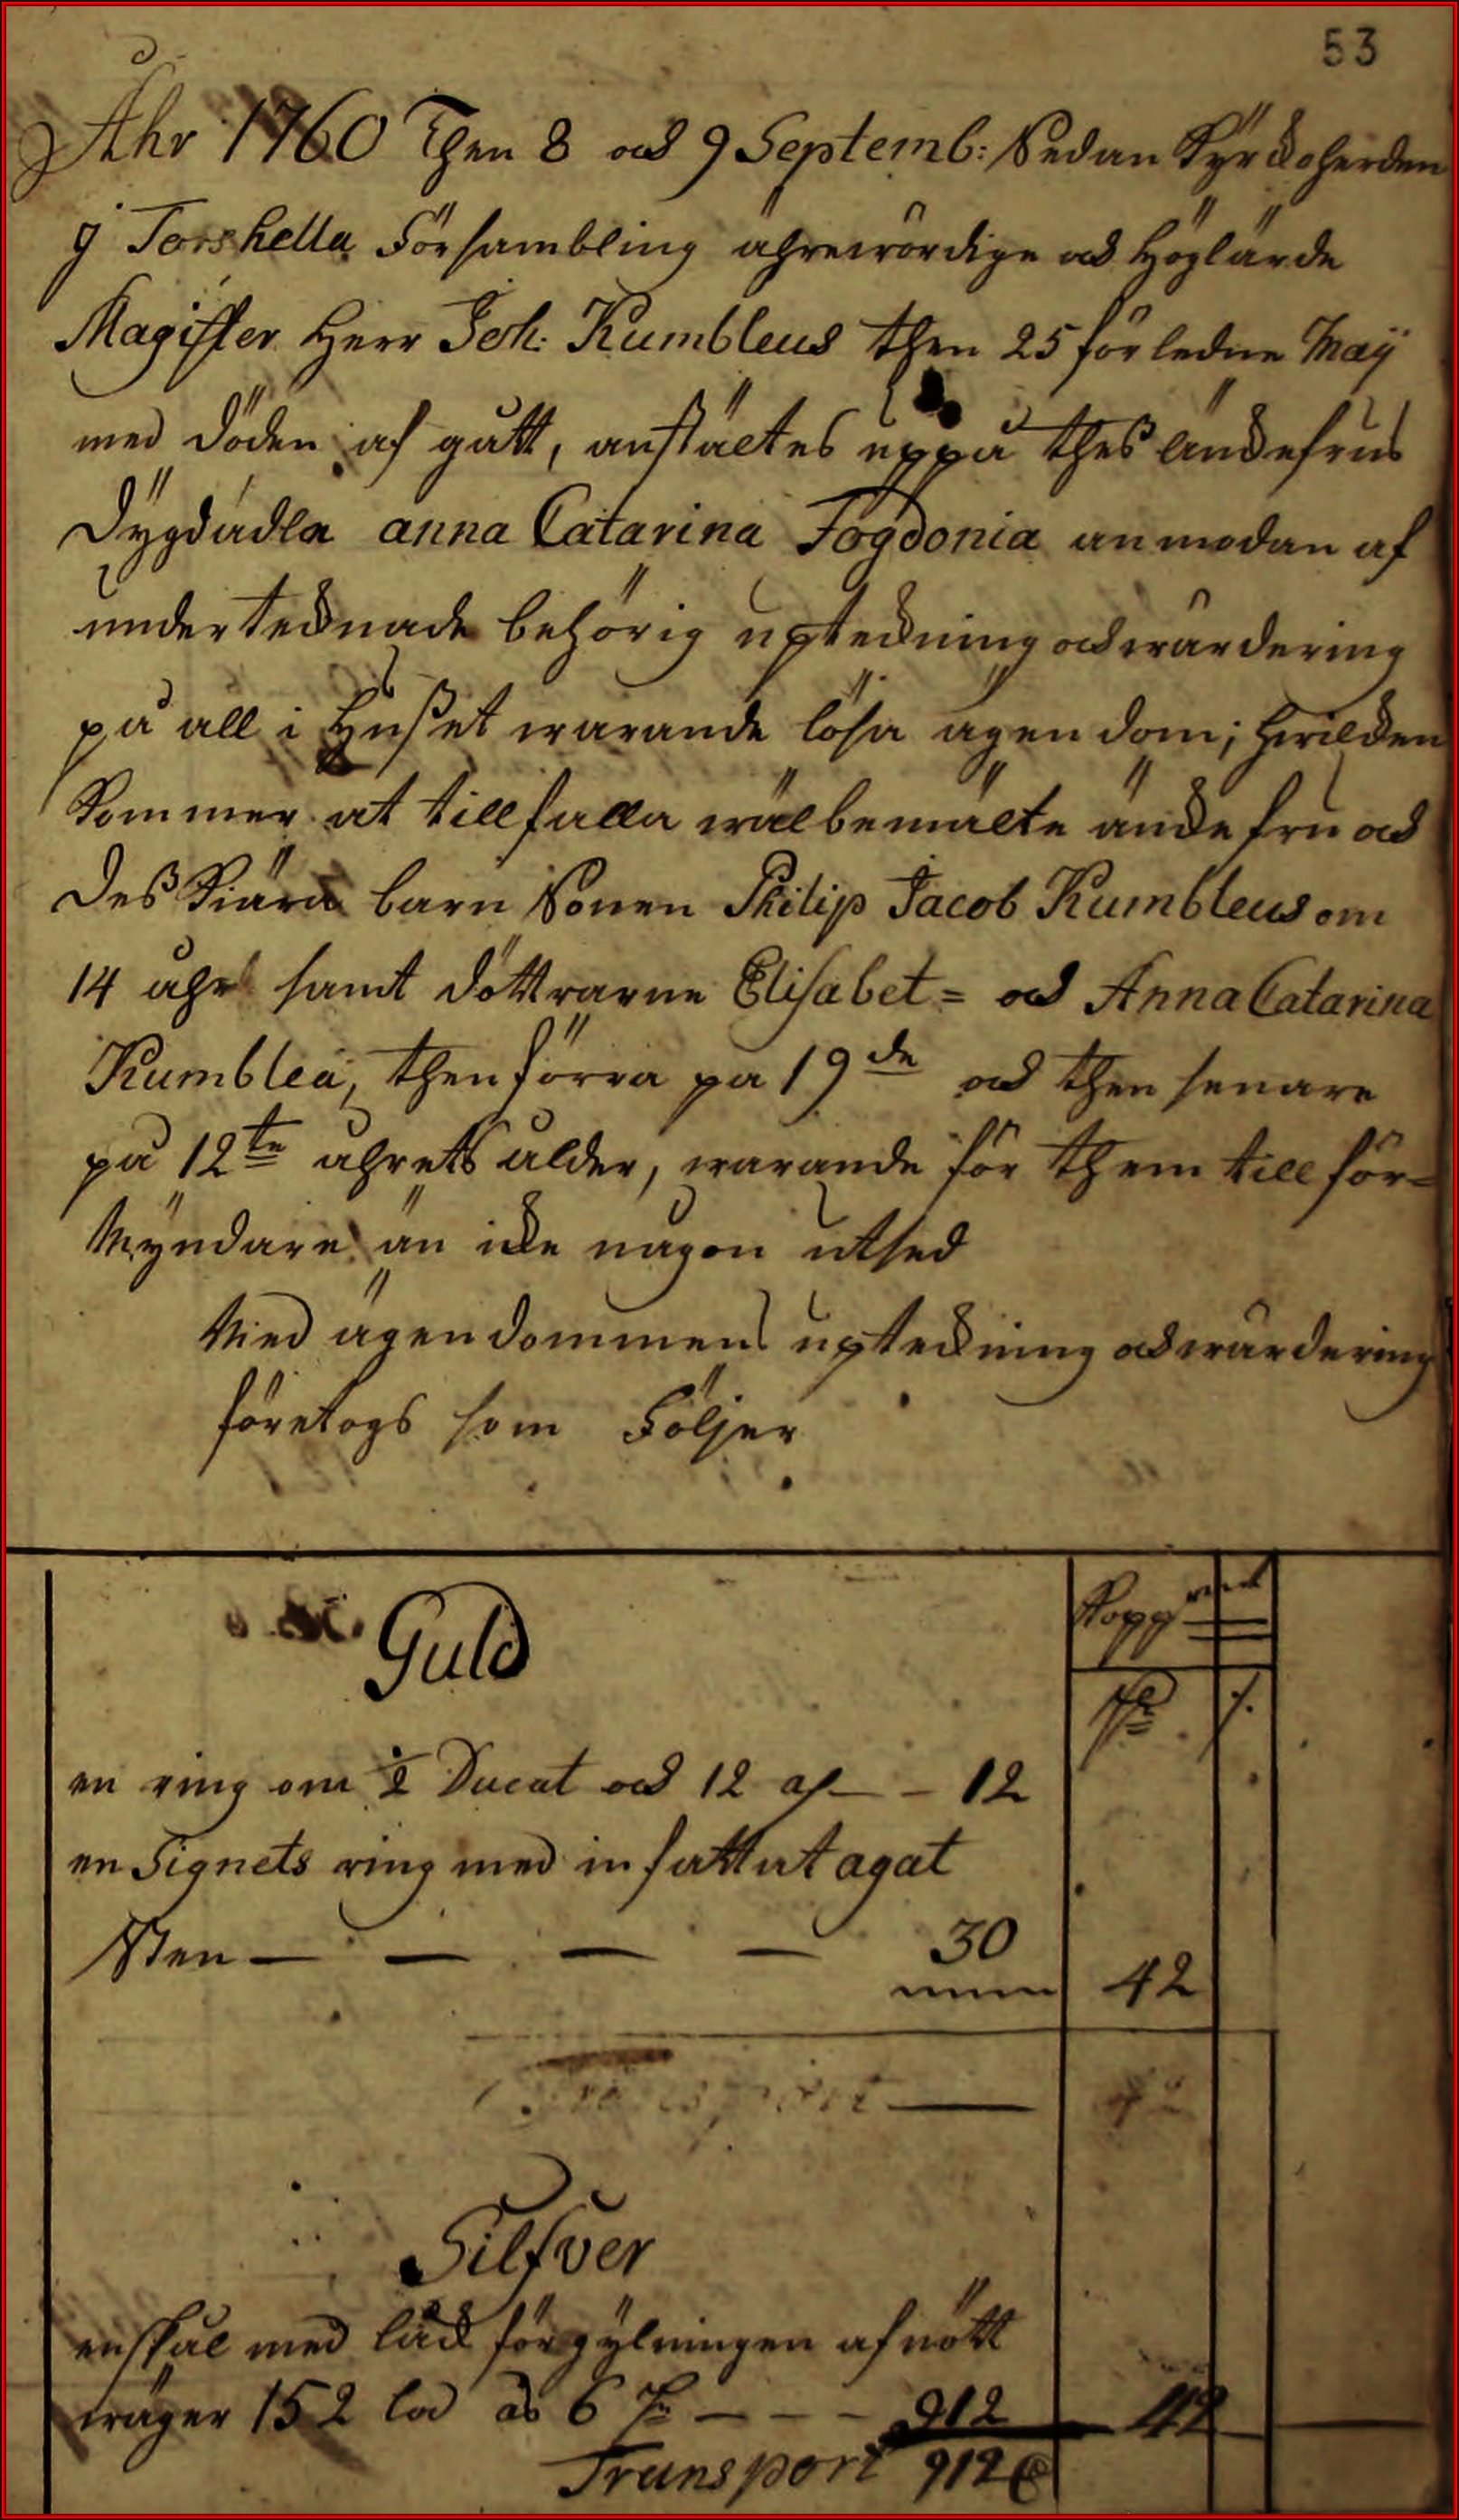 53
Åhr 1760 Then 8 och 9 Septemb: Sedan Kyrckoherden
j Torshella Försambling ährewördige och Höglärde
Magister Herr Joh: Kumbleus then 25 förledne Maij
med döden af gått, anstältes uppå thes änckefrus
Dygdädla Anna Catarina Fogdonia anmodan af
undertecknade behörig upteckning och wärdering
på all i Huset warande lösa ägendom; hwilcken
kommer at tillfalla wälbemälte änckefru och
Des kiära barn Sonen Philip Jacob Kumbleus om
14 åhr samt döttrarne Elisabet = och Anna Catarina
Kumblea, then förra på 19de och then senare
på 12te åhrets ålder, warande för them till för=
Myndare än icke någon utsed
Med ägendommens upteckning och wärdering
företogs som Följer
Guld
Kopp mt
en ring om ½ Ducat och 12 as — — 12
en Signets ring med infattat agat
Sten — — — — 30
42
Transport — 42
Silfver
en skål med låck förgylningen afnött
wäger 152 lod as 6 — — — 912 42
Transport 912